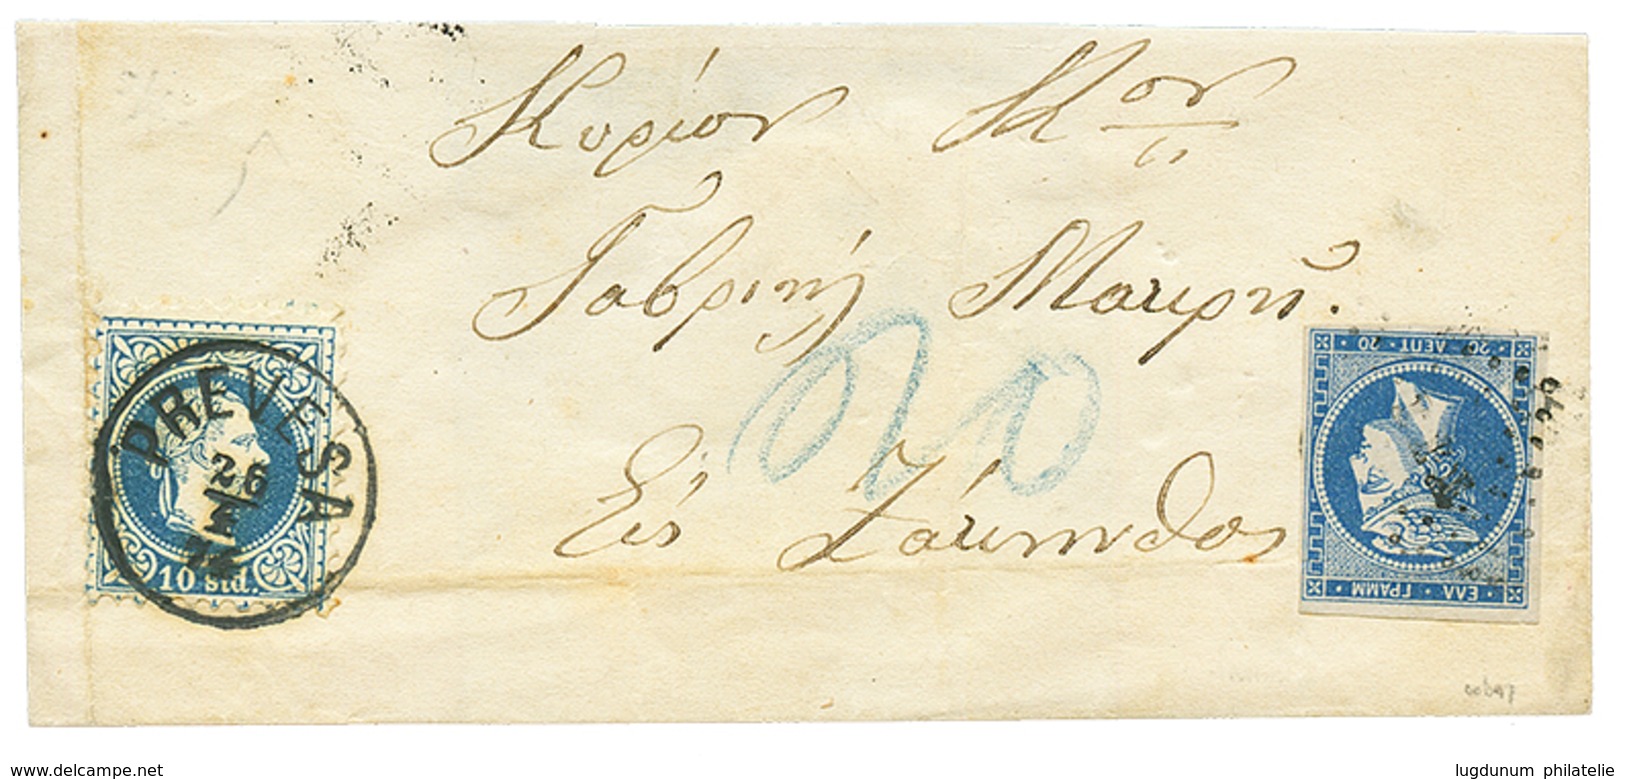 Κυρίον Κον
Γαβριήλ Μαυρή.
20
Εἰς Ζάκυνθον
PREVESA
26
10 sld.
20 ΛΕΠΤ 20
ΕΛΛ ΓΡΑΜΜ
www.delcampe.net
lugdunum philatelie